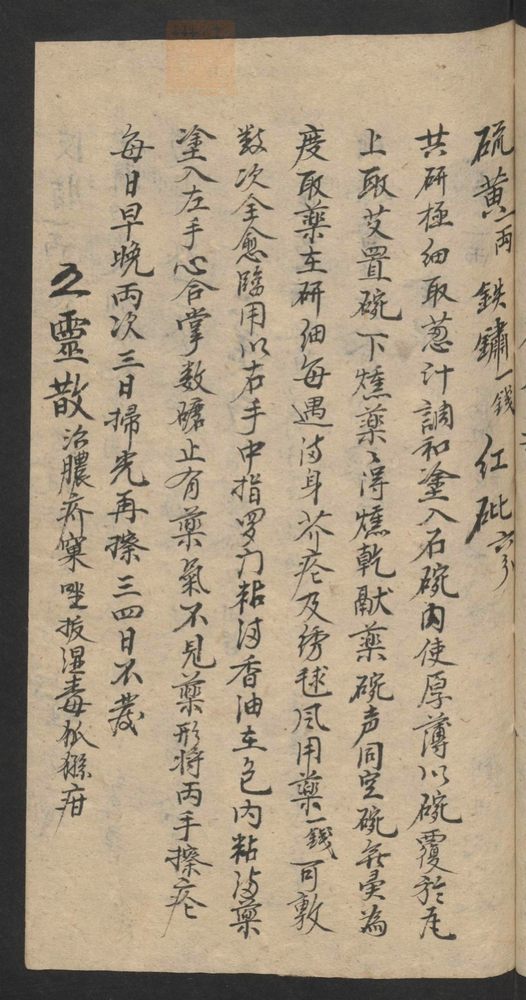 硫黃一兩 鉄鏽一錢 紅砒六分
共研極細取葱汁調和塗入石碗內使厚薄以碗覆於瓦
上取艾置碗下燻藥〻得燻乾敲藥碗声同空碗無異為
度取藥在研細每遇滿身疥瘡及綉毬風用藥一錢可敷
数次全愈臨用以右手中指罗门粘滿香油在包內粘滿藥
塗入左手心合掌数磨止有藥氣不見藥形將兩手擦瘡
每日早晚兩次三日掃光再擦三四日不發
五靈散 治膿疥窠 坐板濕毒 猴疳